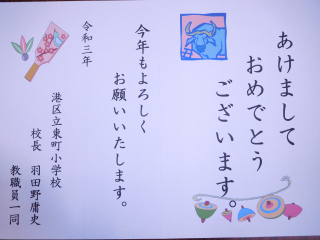 あけまして
おめでとう
ございます。
今年もよろしく
お願いいたします。
令和三年
港区立東町小学校
校長 羽田野庸史
教職員一同